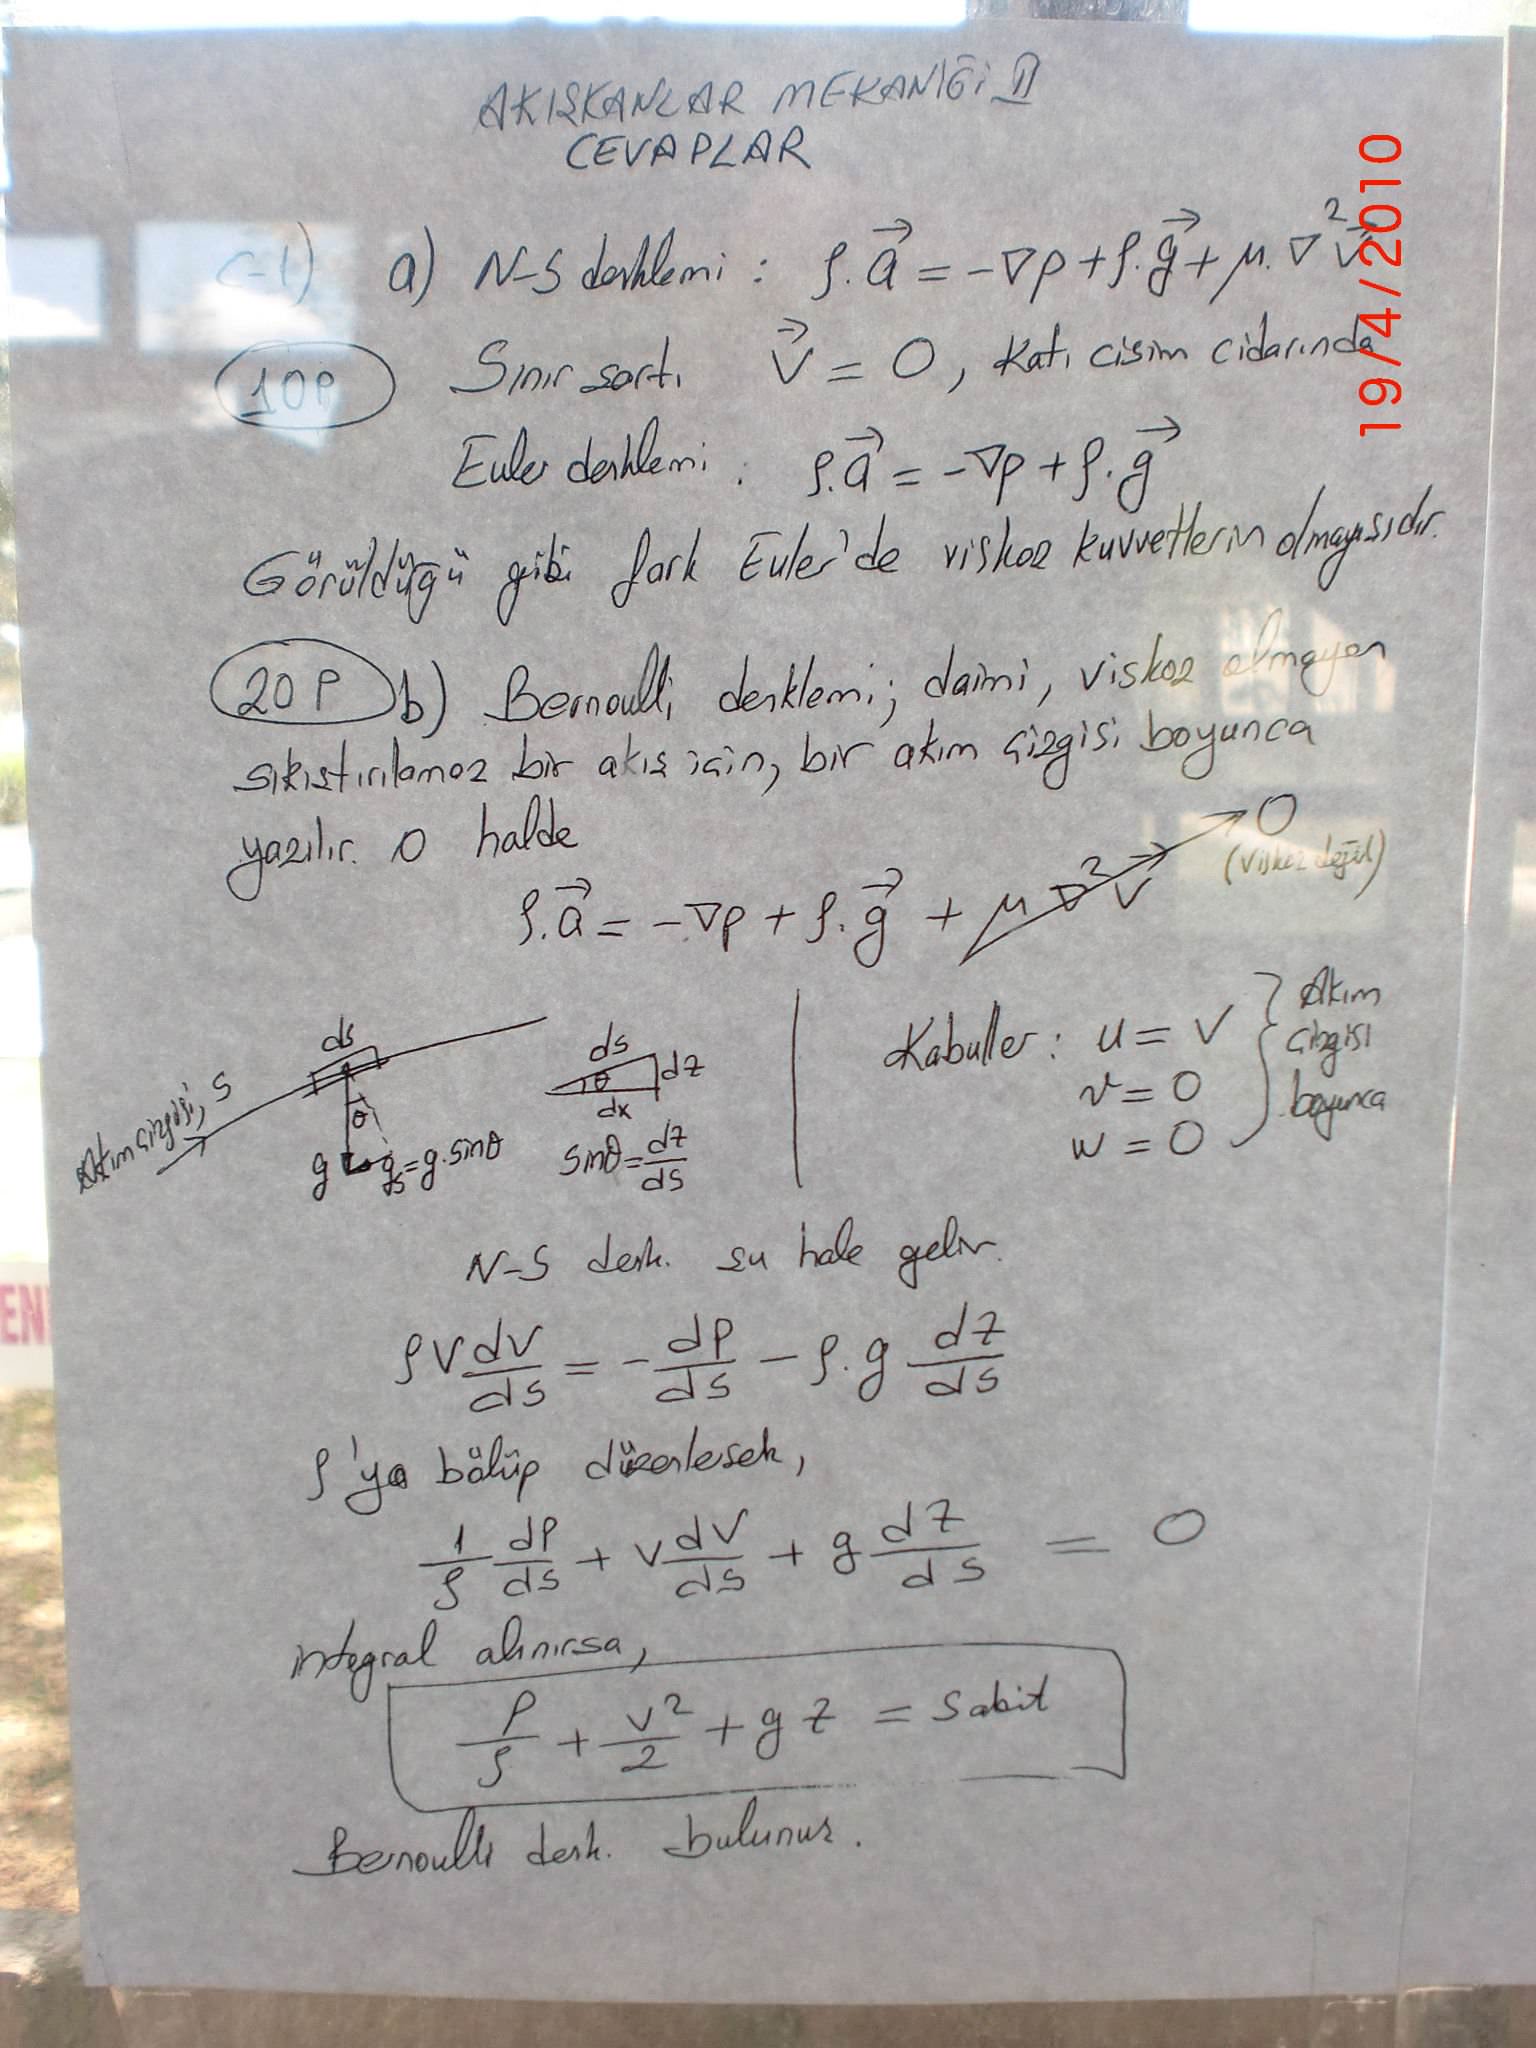 AKIŞKANLAR MEKANİĞİ II
CEVAPLAR
19/4/2010
C-1) a) N-S denklemi : ρ.a⃗ = -∇p + ρ.g⃗ + μ.∇²V⃗
10P Sınır şartı V⃗ = 0, Katı cisim cidarında
Euler denklemi : ρ.a⃗ = -∇p + ρ.g⃗
Görüldüğü gibi fark Euler'de viskoz kuvvetlerin olmayışıdır.
20P b) Bernoulli denklemi; daimi, viskoz olmayan
sıkıştırılamaz bir akış için, bir akım çizgisi boyunca
yazılır. O halde
ρ.a⃗ = -∇p + ρ.g⃗ + μ∇²V → 0
(viskoz değil)
Akım çizgisi, s
ds
θ
g
gs = g.sinθ
ds
θ
dz
dx
sinθ = dz/ds
Kabuller : u = V
v = 0
w = 0
Akım
çizgisi
boyunca
N-S denk. şu hale gelir.
ρV dV/ds = - dP/ds - ρ.g dz/ds
ρ'ya bölüp düzenlesek,
1/ρ dP/ds + V dV/ds + g dz/ds = 0
integral alınırsa,
P/ρ + V²/2 + gz = Sabit
Bernoulli denk. bulunur.
EN